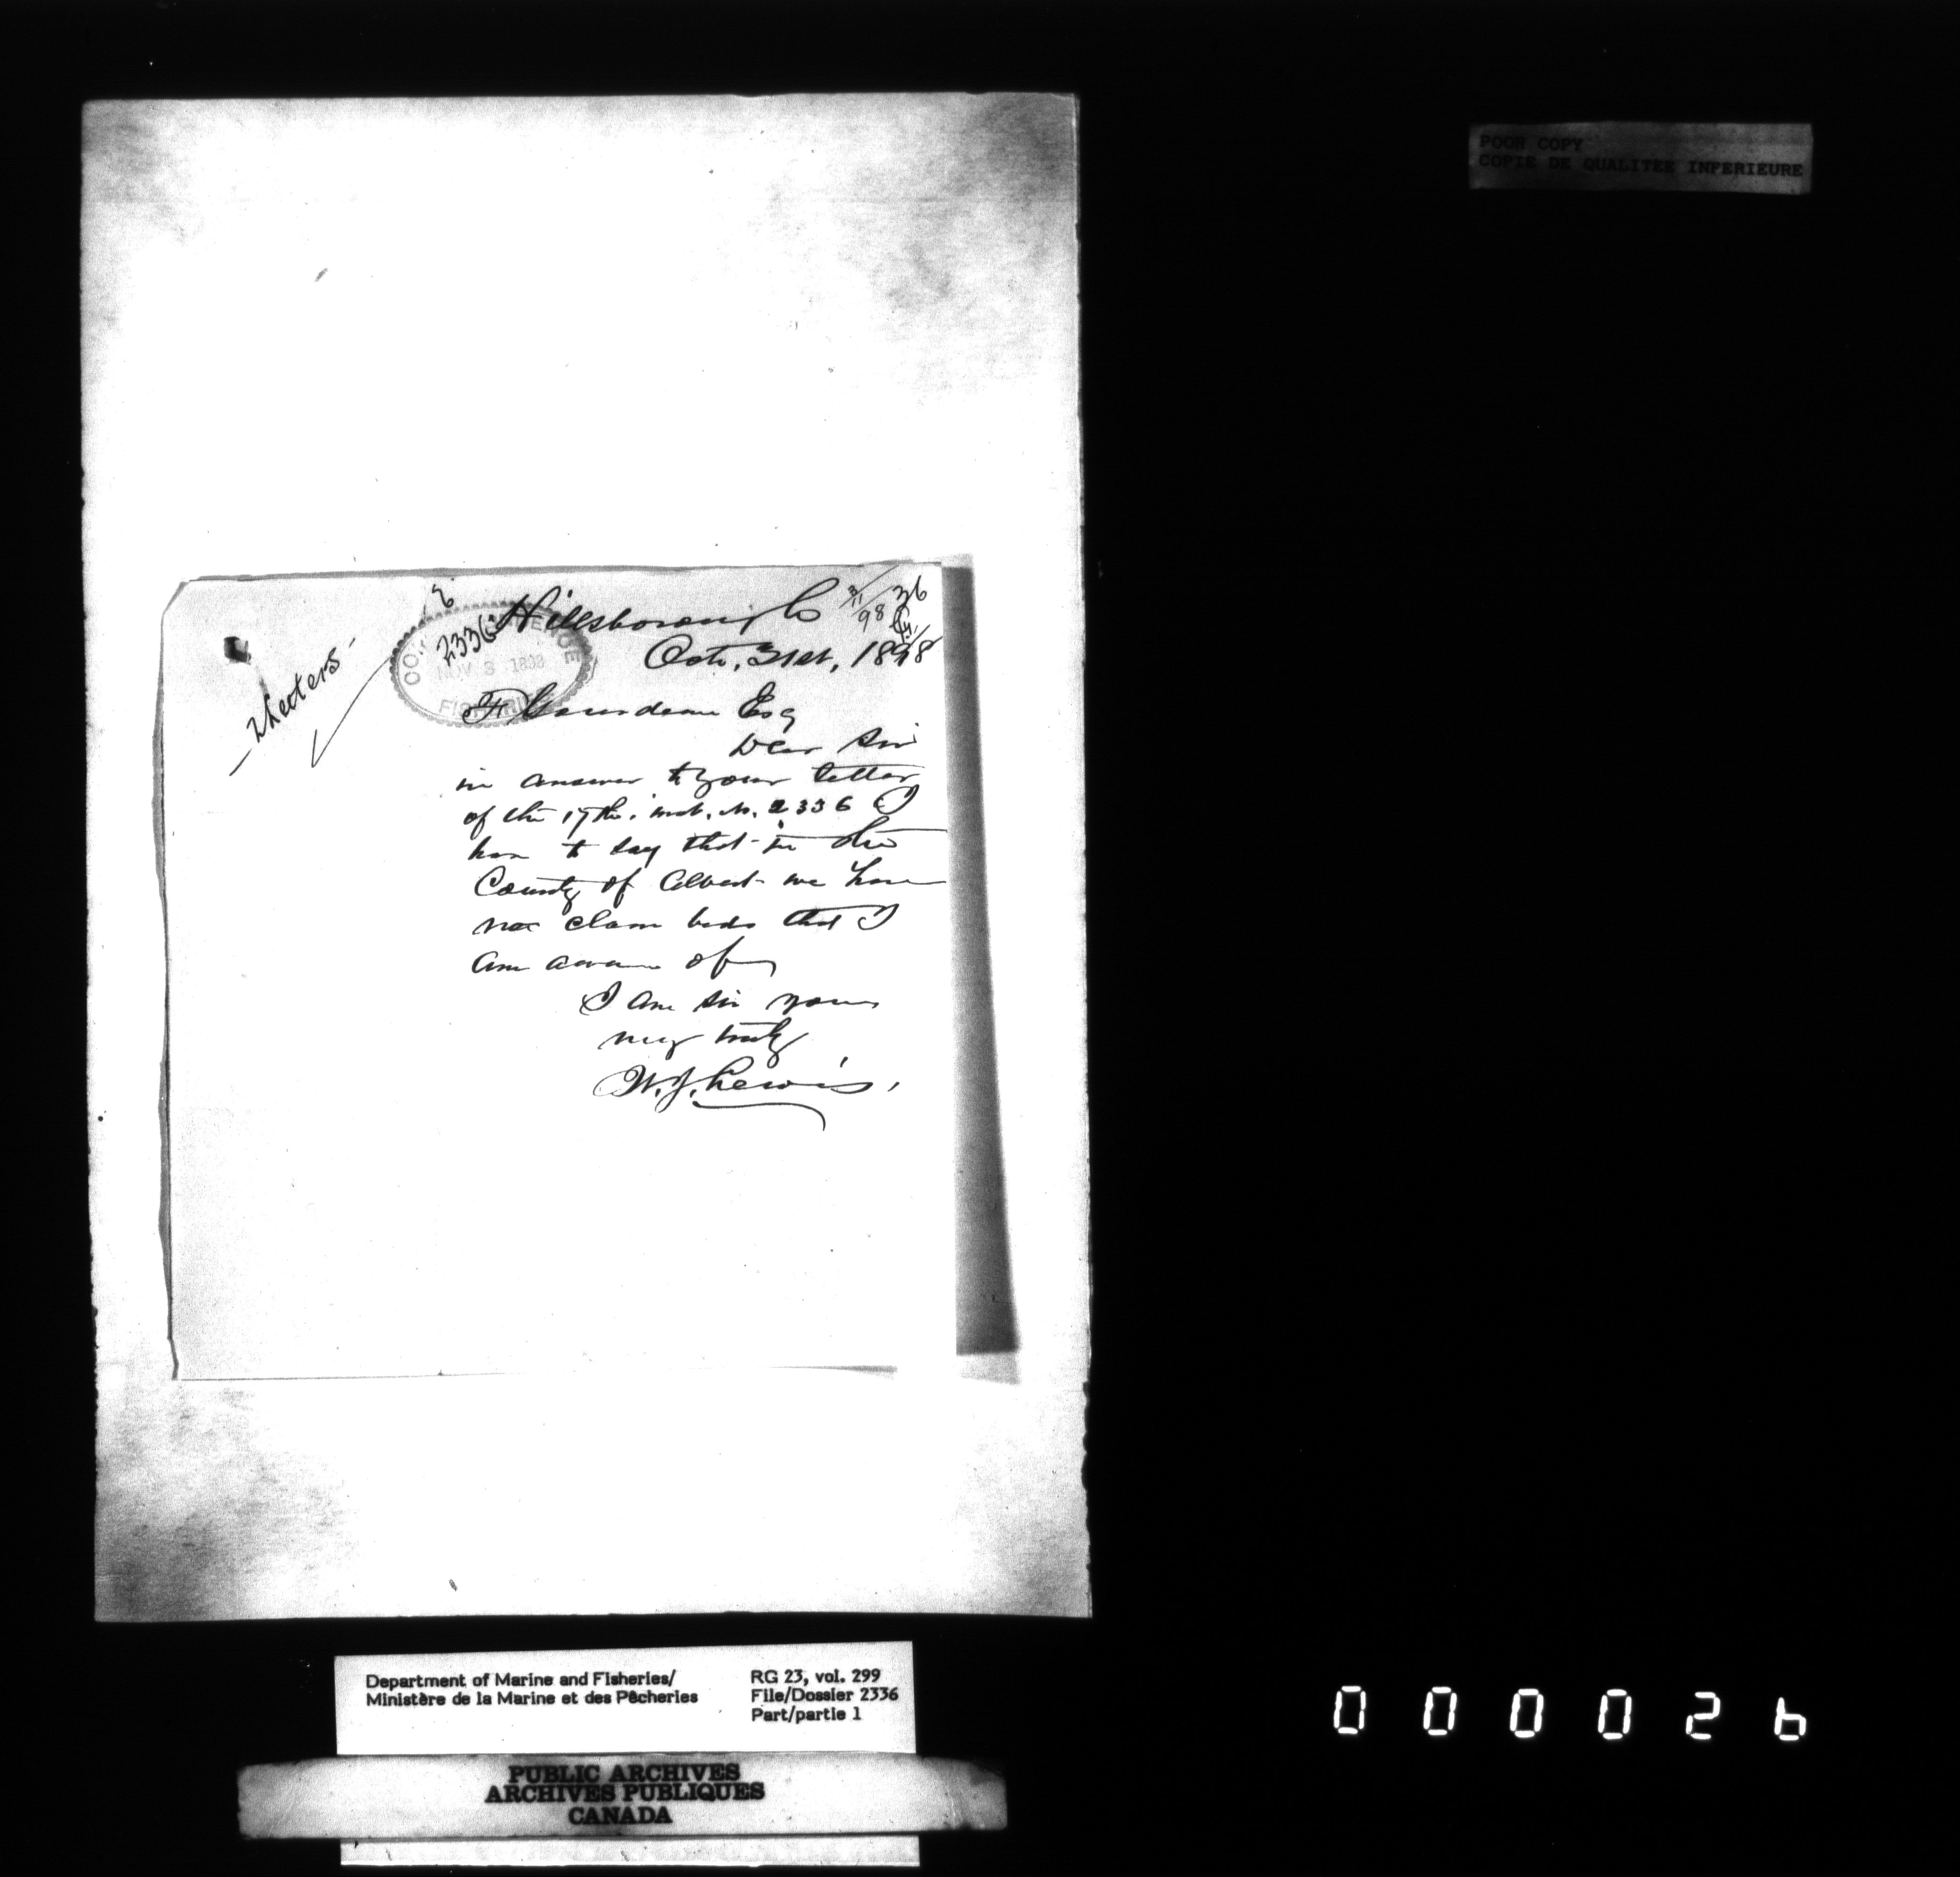 POOR COPY
COPIE DE QUALITEE INFERIEURE
Hillsborough
3/11 98
36
Oct, 31st, 1898
2336
NOV 3 1898
FISHERIES
2 Letters
F. Gourdeau Esq
Dear Sir
in answer to your letter
of the 17th. inst. No. 2336 I
have to say that in the
County of Albert we have
no clam beds that I
am aware of
I am Sir yours
very truly
W. J. Lewis.
Department of Marine and Fisheries/
Ministère de la Marine et des Pêcheries
RG 23, vol. 299
File/Dossier 2336
Part/partie 1
PUBLIC ARCHIVES
ARCHIVES PUBLIQUES
CANADA
000026